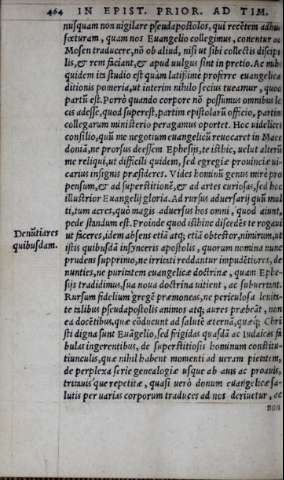 464 IN EPIST. PRIOR. AD TIM.
nusquam non uigilare pseudapostolos, qui recẽtem adhuc
fœturam, quam nos Euangelio collegimus, conentur ad
Mosen traducere, nõ ob aliud, nisi ut sibi collectis discipu
lis, & rem faciant, & apud uulgus sint in pretio. Ac mihi
quidem in studio est quàm latißime proferre euangelicæ
ditionis pomeria, ut interim nihilo secius tueamur, quod
partũ est. Porrò quando corpore nõ possumus omnibus lo
cis adesse, quod superest, partim epistolarũ officio, partim
collegarum ministerio peragamus oportet. Hoc uidelicet
consilio, quũ me negotium euangelicũ reuocaret in Mace
doniã, ne prorsus deessem Ephesijs, te istbic, uelut alterũ
me reliqui, ut difficili quidem, sed egregiæ prouinciæ ui-
carius insignis præsideres. Vides hominũ genus mire pro
pensum, & ad superstitionẽ, & ad artes curiosas, sed hoc
illustrior Euangelij gloria. Ad rursus aduersarij quũ mul
ti, tum acres, quò magis aduersus hos omni, quod aiunt,
pede standum est. Proinde quod istbinc discedẽs te rogaui
ut faceres, idem absens etiã atq; etiã obtestor, nimirum, ut
Denũtiares
quibusdam.
istis quibusdã insynceris apostolis, quorum nomina nunc
prudens supprimo, ne irritati reddantur impudẽtiores, de
nunties, ne puritatem euangelicæ doctrinæ, quam Ephe-
sijs tradidimus, sua noua doctrina uitient, ac subuertant.
Rursum fidelium gregẽ præmoneas, ne periculosa lenita-
te talibus pseudapostolis animos atq; aures præbeãt, non
ea docẽtibus, quæ cõducunt ad salutẽ æternã, quæq; Chri
sti digna sunt Euãgelio, sed frigidas quasdã ac Iudaicas fa
bulas ingerentibus, de superstitiosis hominum constitu-
tiunculis, quæ nihil habent momenti ad ueram pietatem,
de perplexa serie genealogiæ usque ab auis ac proauis,
tritauis que repetitæ, quasi uerò donum euangelicæ sa-
lutis per uarias corporum traduces ad nos deriuetur, ac
non